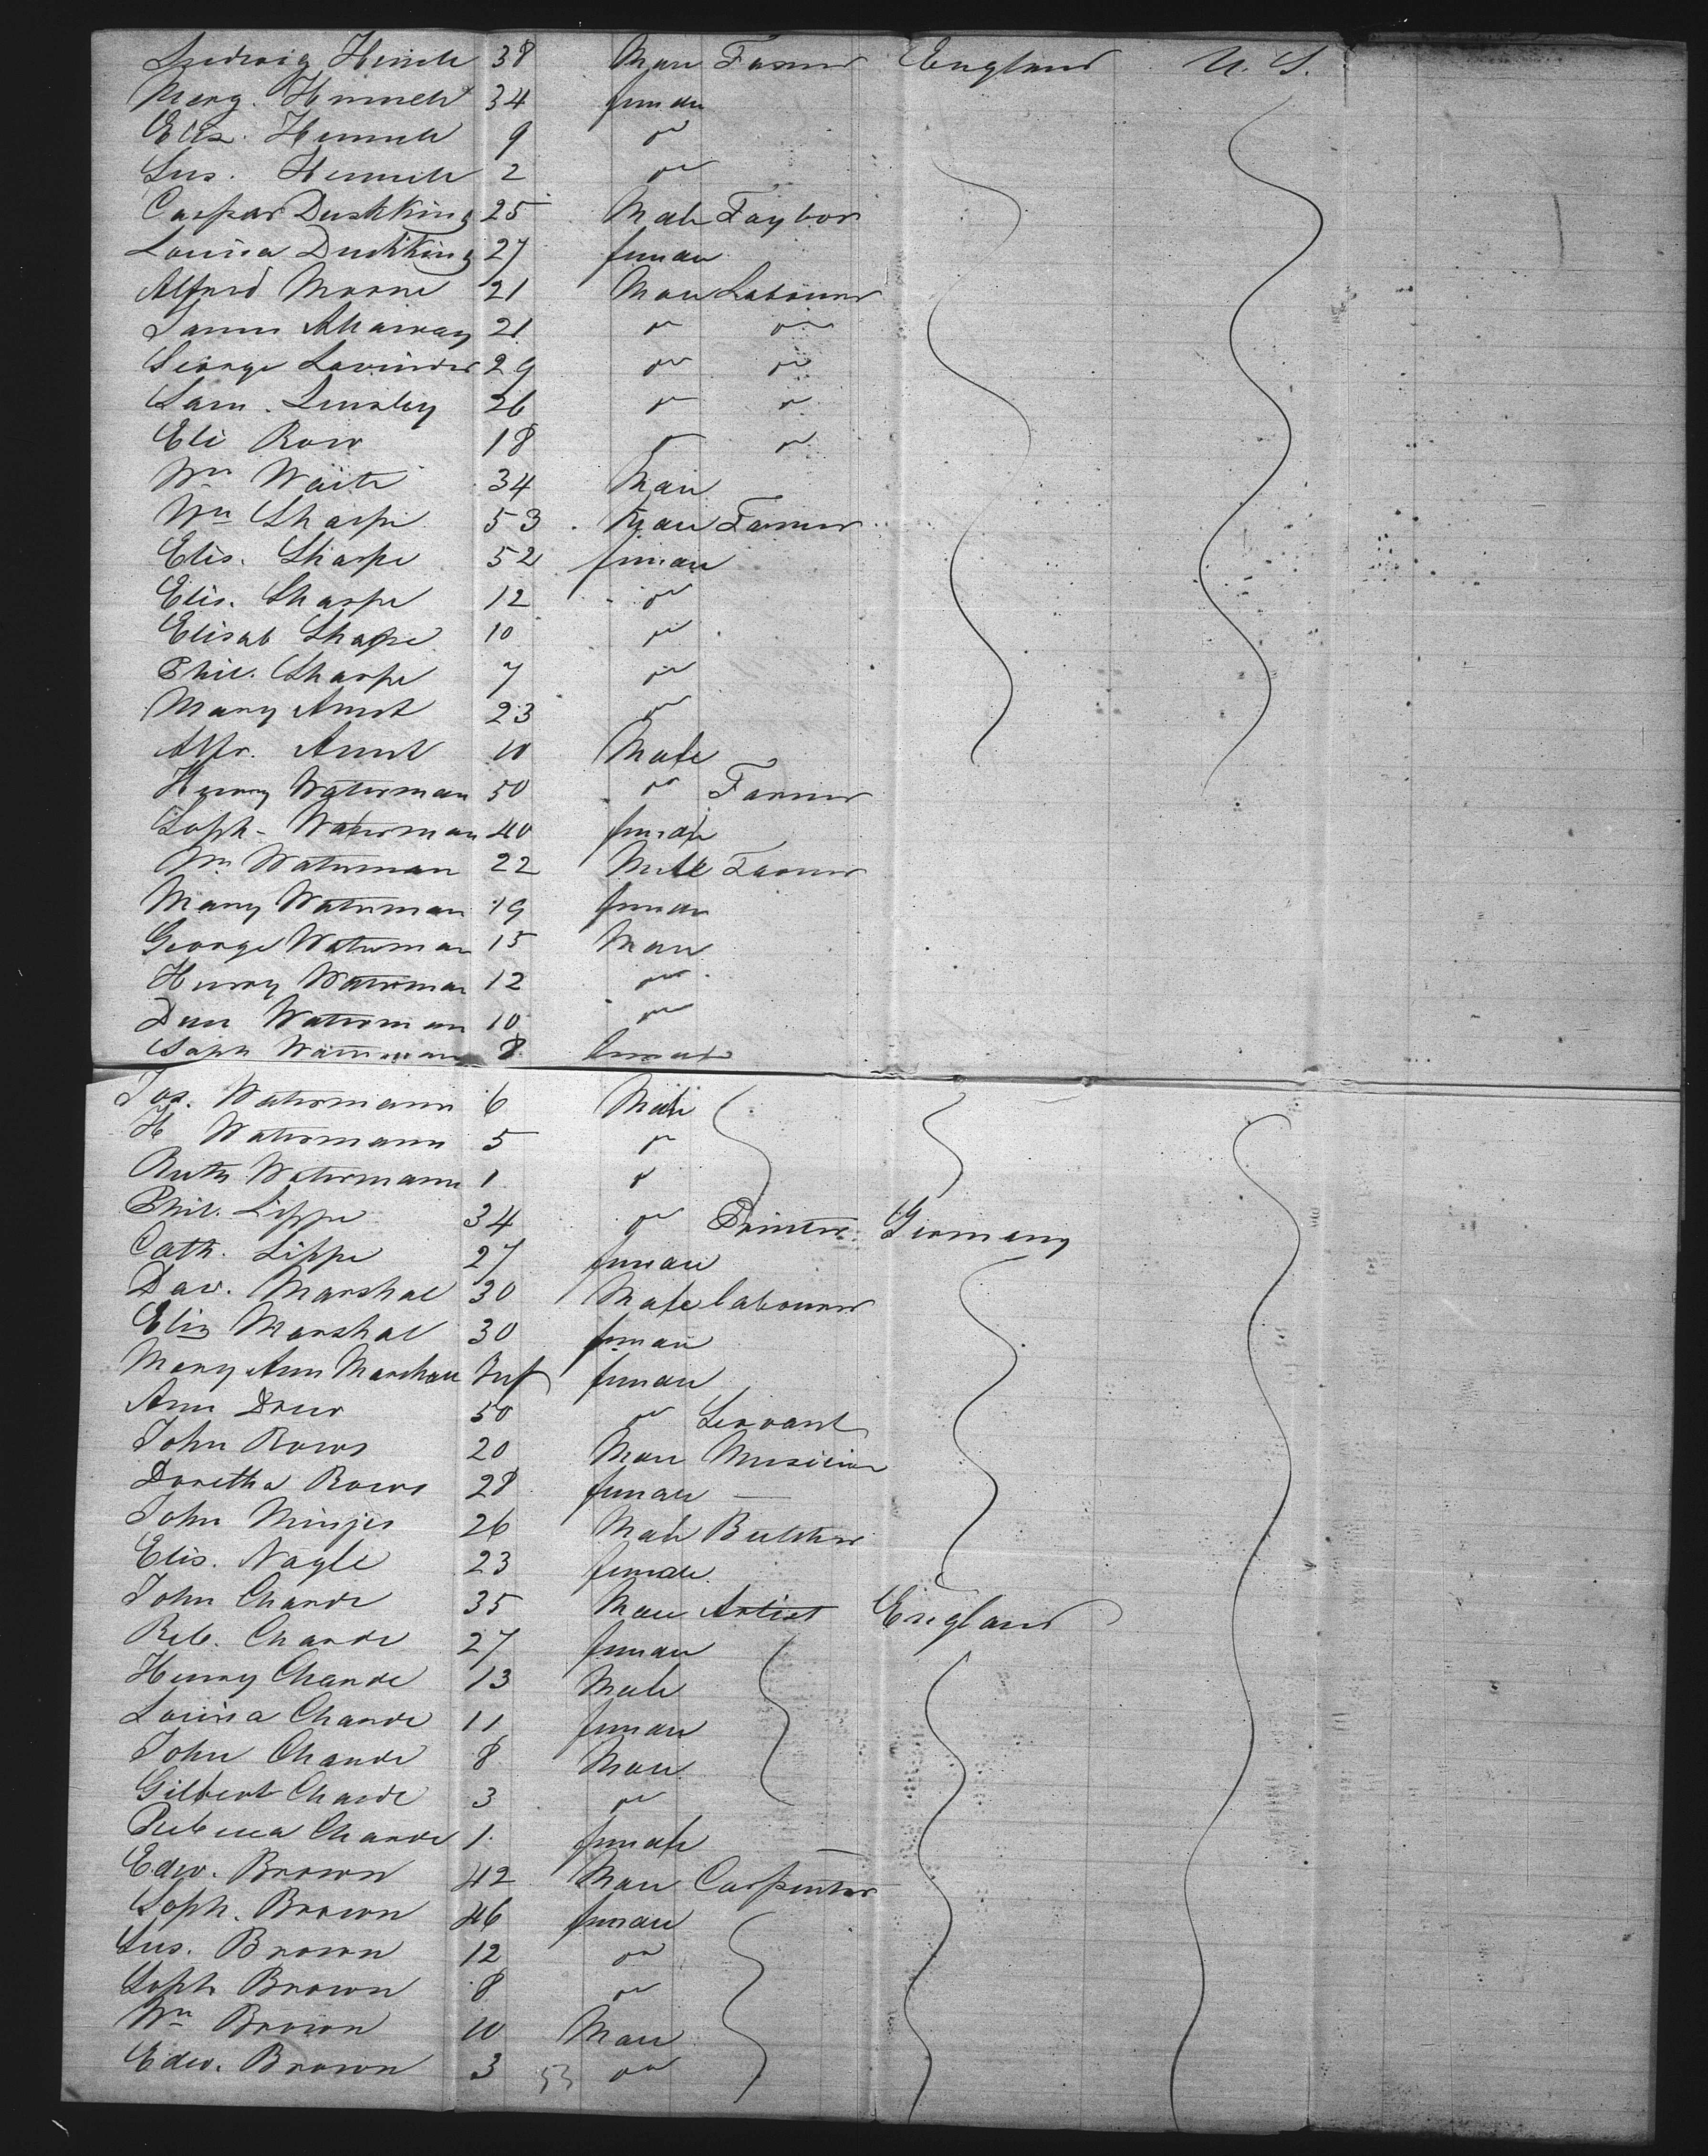 Ludwig 38 Male Farmer England U. S.
Marg. 34 female
Elis. 9 "
Sus. 2 "
Caspar Dushking 25 Male Taylor
Louisa Dushking 27 female
Alfred Moore 21 Male Labourer
James 21 " "
George Lavinder 29 " "
Sam. Linsley 26 " "
Eli Row 18 " "
Wm Waite 34 Male
Wm Sharpe 53 Male Farmer
Elis. Sharpe 52 female
Elis. Sharpe 12 "
Elisab Sharpe 10 "
Phil. Sharpe 7 "
Mary 23 "
Alfr. 10 Male
Henry Waterman 50 " Farmer
Soph- Waterman 40 female
Wm Waterman 22 Male Farmer
Mary Waterman 19 female
George Waterman 15 Male
Henry Waterman 12 "
Dan Waterman 10 "
Soph Waterman 8 female
Jos. Watermann 6 Male
H Watermann 5 "
Ruth Watermann 1 "
Phil. Lippe 34 " Printer Germany
Cath. Lippe 27 female
Dav. Marshal 30 Male labourer
Elis Marshal 30 female
Mary Ann Marshall Inf female
Ann Drew 50 " Servant
John Rows 20 Male Musician
Doretha Rows 28 female —
John Minjes 26 Male Butcher
Elis. Nagle 23 female
John Chande 35 Male Artist England
Reb. Chande 27 female
Henry Chande 13 Male
Louisa Chande 11 female
John Chande 8 Male
Gilbert Chande 3 "
Rebecca Chande 1 female
Edw. Brown 42 Male Carpenter
Soph. Brown 46 female
Sus. Brown 12 "
Soph Brown 8 "
Wm Brown 10 Male
Edw. Brown 3 53 "